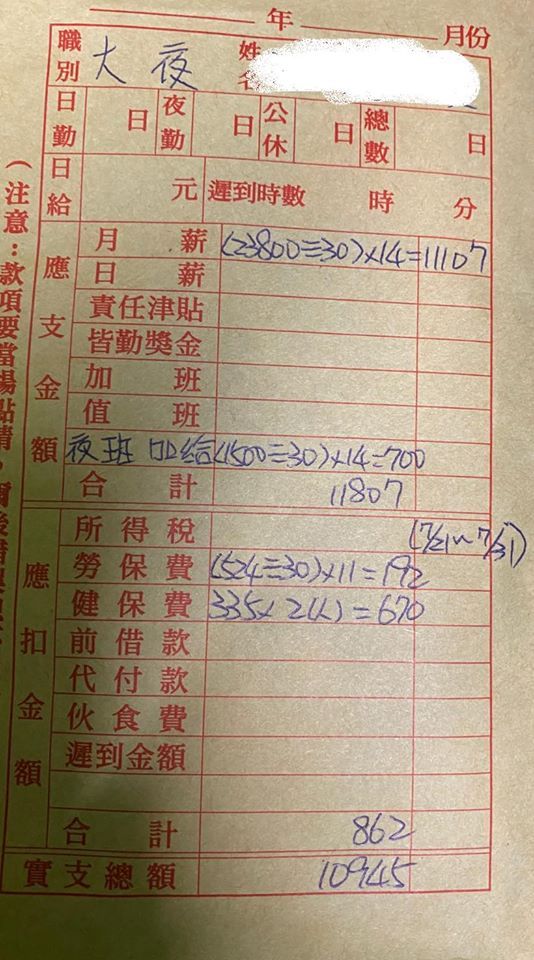 年 月份
職別 大夜 姓名
日勤 日 夜勤 日 公休 日 總數 日
日給 元 遲到時數 時 分
應支金額
月薪 (23800÷30)×14=11107
日薪
責任津貼
皆勤獎金
加班
值班
夜班加給(1500÷30)×14=700
合計 11807
應扣金額
所得稅 (7/21~7/31)
勞保費 (524÷30)×11=192
健保費 335×2(人)=670
前借款
代付款
伙食費
遲到金額
合計 862
實支總額 10945
(注意:款項要當場點清,